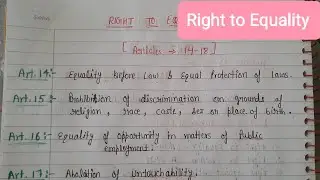 Right to Equality
RIGHT TO
[ Articles → 14-18 ]
Art.14:- Equality Before Law & Equal Protection of laws.
Art.15:- Prohibition of discrimination on grounds of
religion, race, caste, sex or place of birth.
Art.16:- Equality of opportunity in matters of Public
employment.
Art.17:- Abolition of Untouchability.